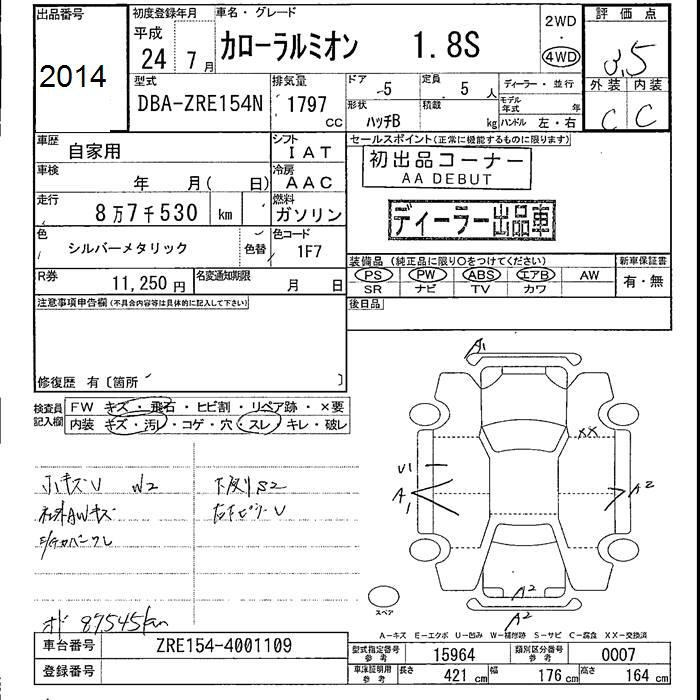 出品番号
2014
初度登録年月
平成
24 年 7 月
車名・グレード
カローラルミオン 1.8S
2WD
・
4WD
評価点
3.5
外装 内装
C C
型式
DBA-ZRE154N
排気量
1797 CC
ドア
5
定員
5 人
形状
ハッチB
積載
kg
ディーラー・並行
モデル年式 年
ハンドル 左・右
車歴
自家用
シフト
IAT
車検
年 月( 日)
冷房
AAC
走行
8万7千530 km
燃料
ガソリン
色
シルバーメタリック
色替
色コード
1F7
R券
11,250 円
名変通知期限
月 日
セールスポイント(正常に機能するものに限ります)
初出品コーナー
AA DEBUT
ディーラー出品車
装備品(純正品に限り○をつけてください)
PS PW ABS エアB AW
SR ナビ TV カワ
新車保証書
有・無
後日品
注意事項申告欄(不具合内容等は具体的に記入して下さい)
修復歴 有〔箇所 〕
検査員記入欄
FW キズ・飛石・ヒビ割・リペア跡・×要
内装 キズ・汚レ・コゲ・穴・スレ・キレ・破レ
小キズU W2
下廻りS2
社外AWキズ
オド 87545km
A1
XX
U1
A1
A2
A2
A2
スペア
A-キズ E-エクボ U-凹み W-補修跡 S-サビ C-腐食 XX-交換済
車台番号
ZRE154-4001109
登録番号
型式指定番号 参考
15964
類別区分番号 参考
0007
車庫証明用 参考
長さ 421 cm
幅 176 cm
高さ 164 cm